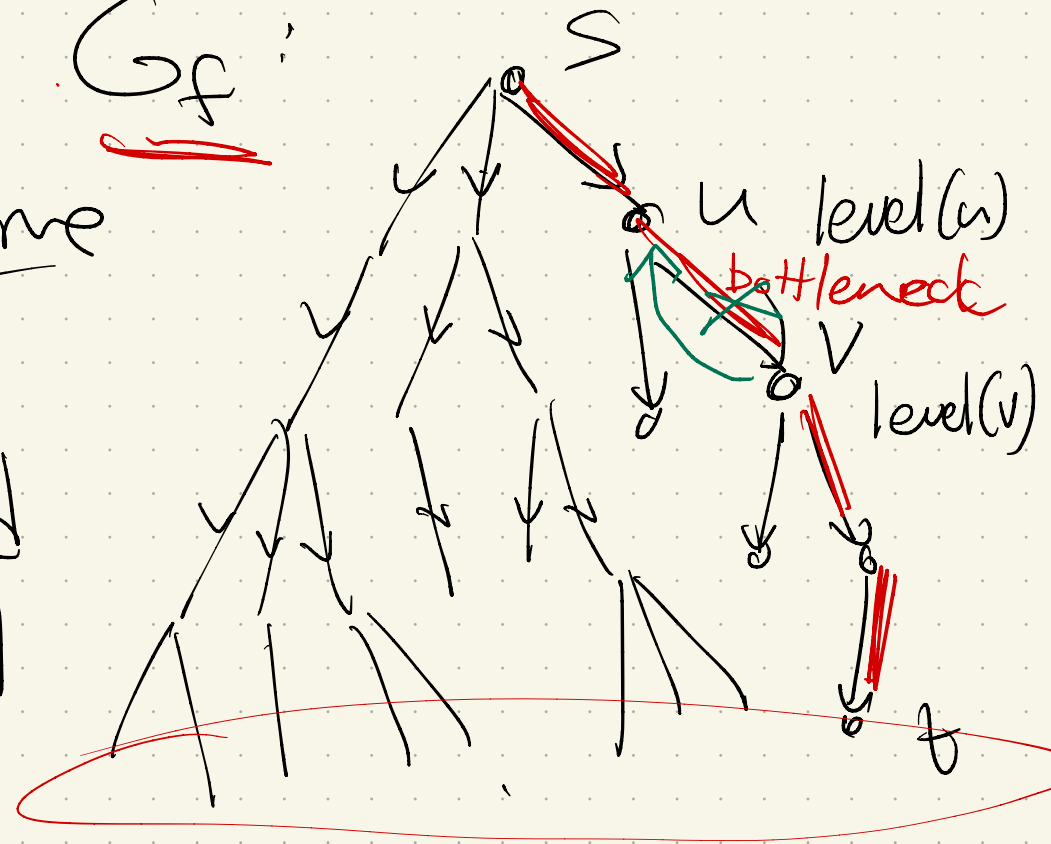 G_f :
S
me
u level(u)
bottleneck
v
level(v)
t